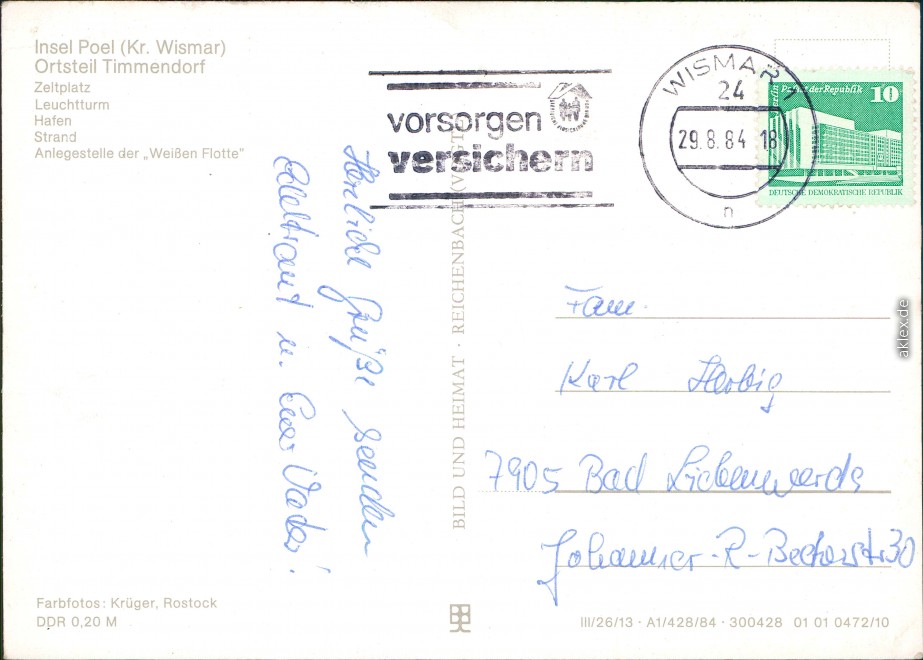 Insel Poel (Kr. Wismar)
Ortsteil Timmendorf
Zeltplatz
Leuchtturm
Hafen
Strand
Anlegestelle der „Weißen Flotte"
vorsorgen
versichern
WISMAR 1
24
29.8.84 18
n
Palast der Republik 10
DEUTSCHE DEMOKRATISCHE REPUBLIK
Herzliche Grüße senden
u. Euer Vater!
BILD UND HEIMAT · REICHENBACH (VOGTL
Fam.
Karl Herbig
7905 Bad Liebenwerda
Johannes-R-Becherstr 30
Farbfotos: Krüger, Rostock
DDR 0,20 M
III/26/13 · A1/428/84 · 300428 01 01 0472/10
aklex.de